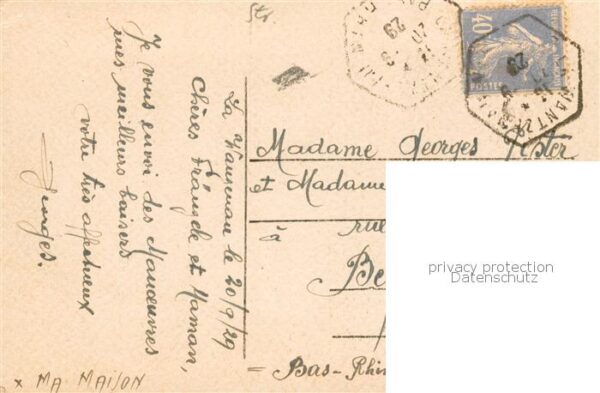 La Wanzenau le 20/9/29
Chères Fränzele et Maman,
Je vous envoi des Manœuvres
mes meilleurs baisers
votre très affectueux
Georges.
× MA MAISON
Madame Georges
et Madame
à
rue
Be
= Bas-Rhin
40
POSTES
29
29
privacy protection
Datenschutz